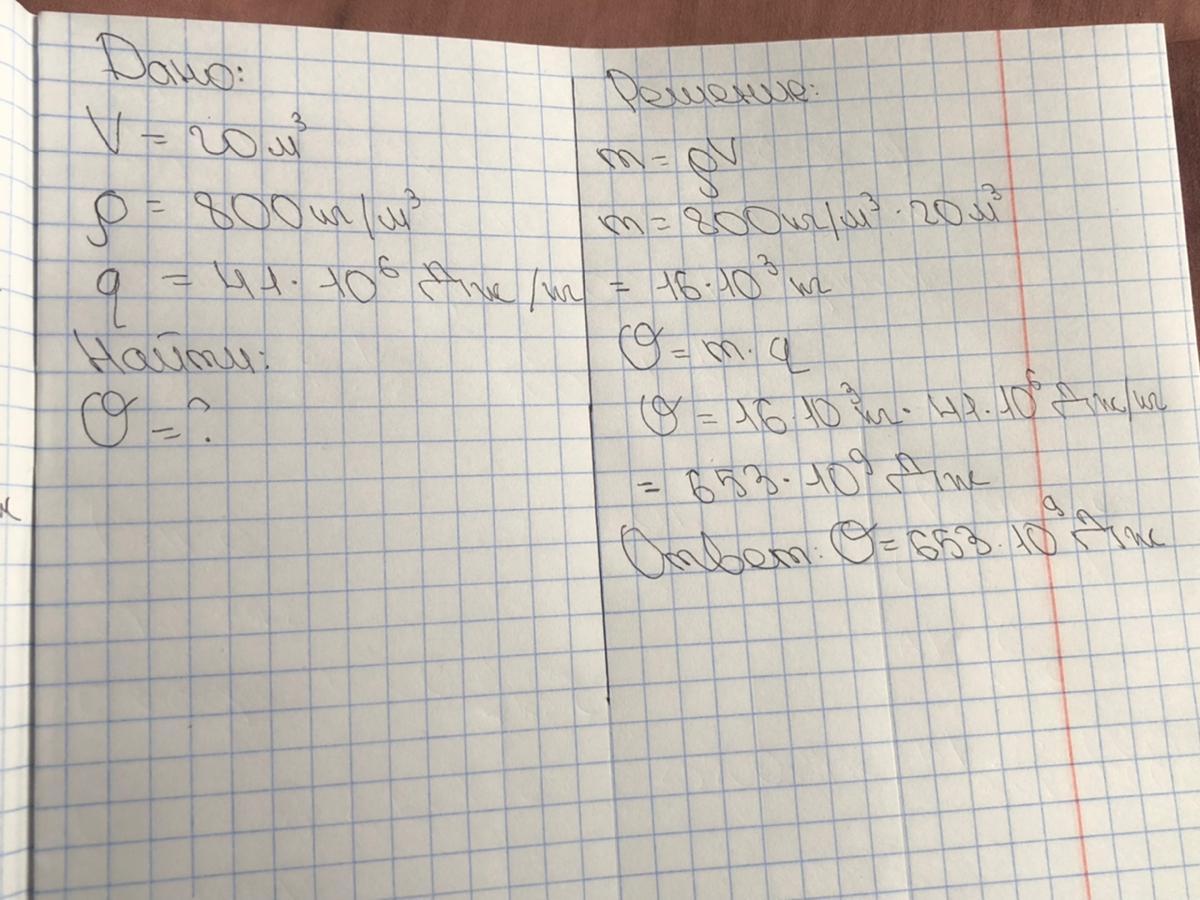 Дано:
V = 20 м³
ρ = 800 кг/м³
q = 41 · 10⁶ Дж/кг
Найти:
Q = ?
Решение:
m = ρV
m = 800 кг/м³ · 20 м³
= 16 · 10³ кг
Q = m · q
Q = 16 · 10³ кг · 41 · 10⁶ Дж/кг
= 653 · 10⁹ Дж
Ответ: Q = 653 · 10⁹ Дж